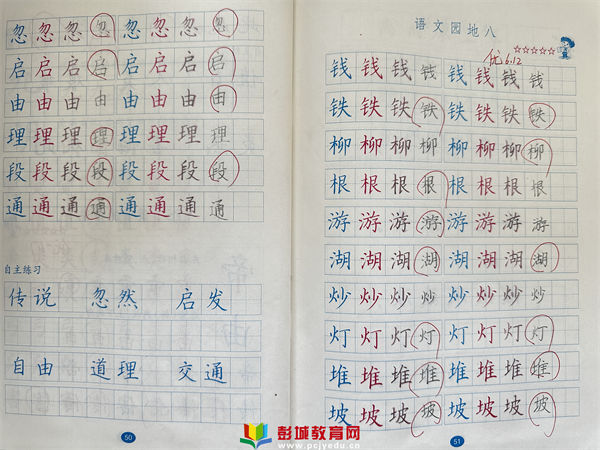 忽忽忽忽忽忽忽忽
启启启启启启启启
由由由由由由由由
理理理理理理理理
段段段段段段段段
通通通通通通通通
自主练习
传说 忽然 启发
自由 道理 交通
50
语文园地八
优 6.12
钱钱钱钱钱钱钱钱
铁铁铁铁铁铁铁铁
柳柳柳柳柳柳柳柳
根根根根根根根根
游游游游游游游游
湖湖湖湖湖湖湖湖
炒炒炒炒炒炒炒炒
灯灯灯灯灯灯灯灯
堆堆堆堆堆堆堆堆
坡坡坡坡坡坡坡坡
51
彭城教育网
www.pcjyedu.cn